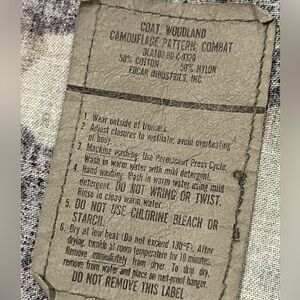 COAT, WOODLAND
CAMOUFLAGE PATTERN: COMBAT
50% COTTON 50% NYLON
INDUSTRIES, INC.
1. Wear outside of trousers.
2. Adjust closures to ventilate; avoid overheating
of body.
3. Machine washing. Use Permanent Press Cycle.
Wash in warm water with mild detergent.
4. Hand washing. Wash in warm water using mild
detergent. DO NOT WRING OR TWIST.
Rinse in clean warm water.
5. DO NOT USE CHLORINE BLEACH OR
STARCH.
6. Dry at low heat (Do not exceed 130°F). After
drying, tumble at room temperature for 10 minutes.
Remove immediately from dryer. To drip dry,
remove from water and place on rust-proof hanger.
DO NOT REMOVE THIS LABEL